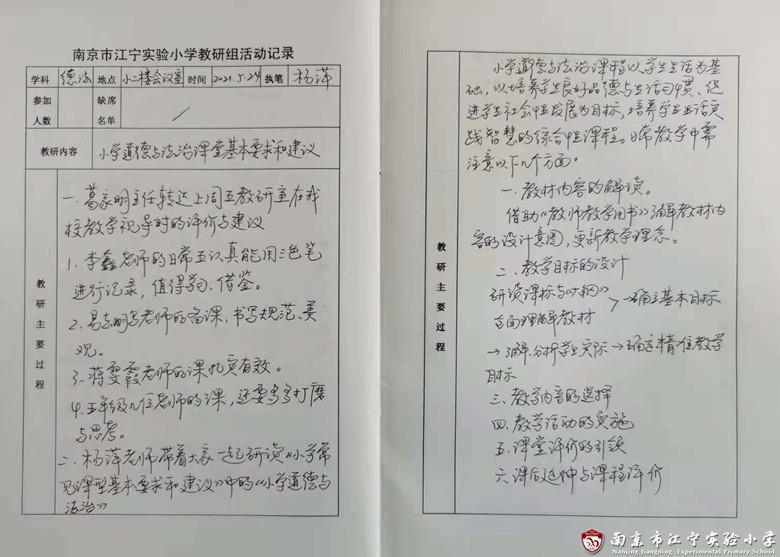 南京市江宁实验小学教研组活动记录
学科 德法 地点 小二楼会议室 时间 2021.5.24 执笔 杨萍
参加人数 缺席名单
教研内容 小学道德与法治课堂基本要求和建议
教研主要过程
一.葛家明主任转达上周五教研室在我
校教学视导时的评价与建议
1.李鑫老师的日常五认真能用三色笔
进行记录，值得学习、借鉴。
2.易志明老师的备课，书写规范、美
观。
3.蒋雯霞老师的课扎实有效。
4.五年级几位老师的课，还要多多打磨
与思考。
二.杨萍老师带着大家一起研读《小学常
见课型基本要求和建议》中的《小学道德与
法治》
教研主要过程
小学道德与法治课程以学生生活为基
础，以培养学生良好品德与生活习惯、促
进学生社会性发展为目标，培养学生生活实
践智慧的综合性课程。日常教学中需
注意以下几个方面。
一.教材内容的解读。
借助《教师教学用书》了解教材内
容的设计意图，更新教学理念。
二.教学目标的设计
研读课标与《大纲》
全面理解教材 > →确立基本目标
→了解.分析学生实际→确定精准教学
目标
三.教学内容的选择
四.教学活动的实施
五.课堂评价的引领
六.课后延伸与课程评价
南京市江宁实验小学
Nanjing Jiangning Experimental Primary School